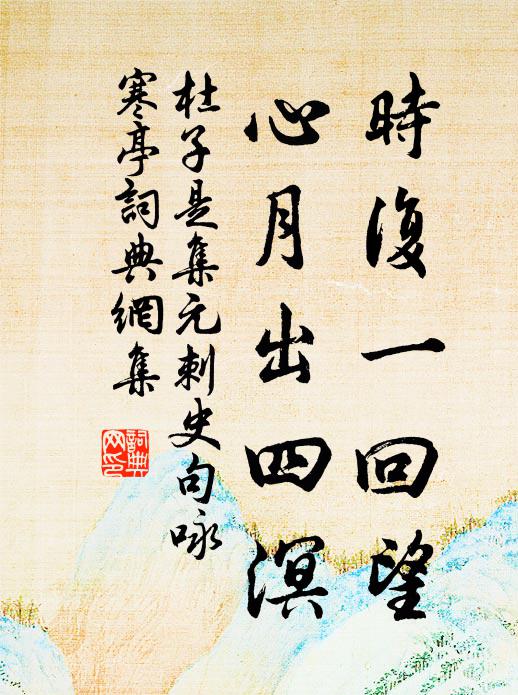 時復一回望
心月出四溟
杜子是集元刺史句咏
寒亭詞典網集
詞典
网印